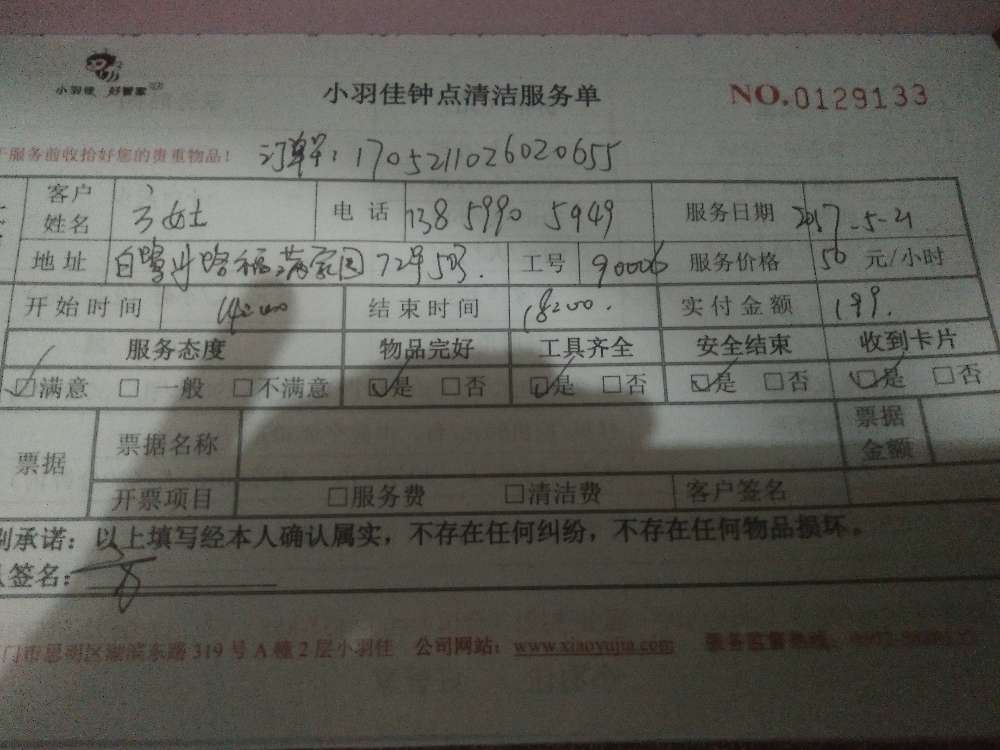 小羽佳 好管家
小羽佳钟点清洁服务单
NO.0129133
服务前收拾好您的贵重物品! 订单号:1705211026020655
客户姓名 女士 电话 138 5990 5949 服务日期 2017-5-21
地址 白鹭洲路福满家园72号503. 工号 90006 服务价格 50 元/小时
开始时间 14:00 结束时间 18:00. 实付金额 199.
服务态度 物品完好 工具齐全 安全结束 收到卡片
☑满意 □一般 □不满意 ☑是 □否 ☑是 □否 ☑是 □否 ☑是 □否
票据 票据名称 票据金额
开票项目 □服务费 □清洁费 客户签名
承诺:以上填写经本人确认属实,不存在任何纠纷,不存在任何物品损坏。
签名:
门市思明区湖滨东路319号A幢2层小羽佳 公司网站:www.xiaoyujia.com 服务监督热线: